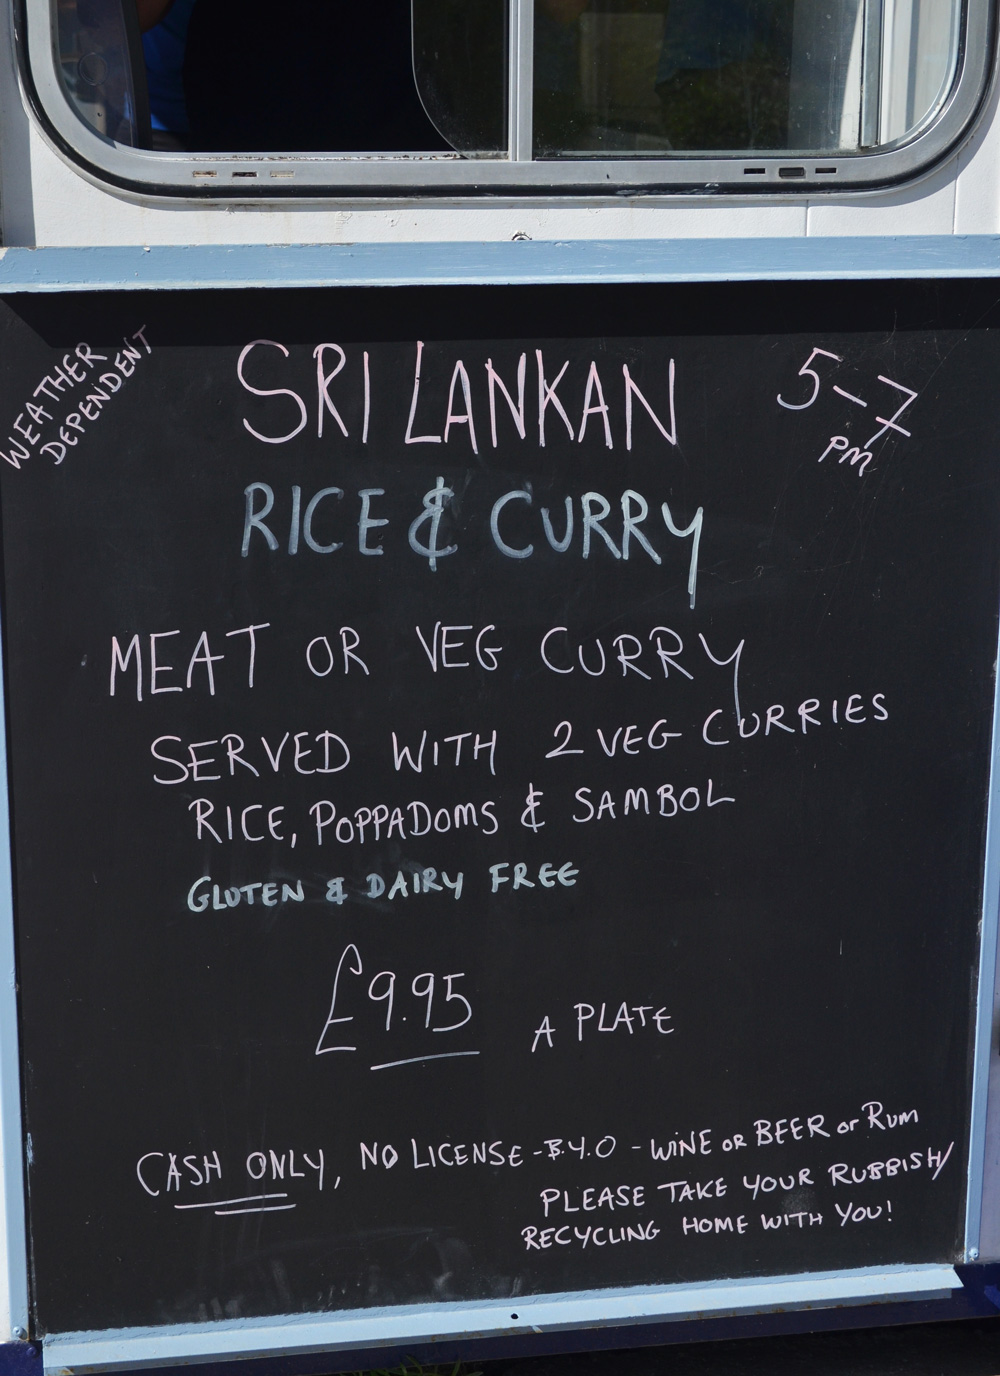 WEATHER
DEPENDENT
SRI LANKAN
5-7
PM
RICE & CURRY
MEAT OR VEG CURRY
SERVED WITH 2 VEG CURRIES
RICE, POPPADOMS & SAMBOL
GLUTEN & DAIRY FREE
£9.95 A PLATE
CASH ONLY, NO LICENSE - B.Y.O - WINE OR BEER OR RUM
PLEASE TAKE YOUR RUBBISH/
RECYCLING HOME WITH YOU!